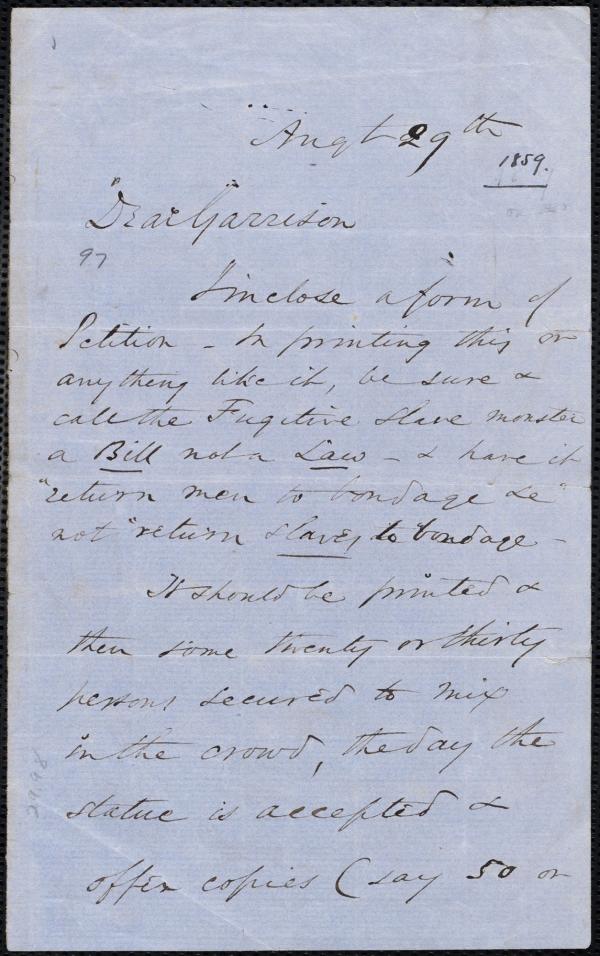 Augt 29th
1859.
Dear Garrison
97
I inclose a form of
Petition - In printing this or
anything like it, be sure &
call the Fugitive Slave monster
a Bill not a Law - & have it
"return men to bondage &c"
not "return slaves to bondage -
It should be printed &
then some twenty or thirty
persons secured to mix
in the crowd, the day the
statue is accepted &
offer copies (say 50 or